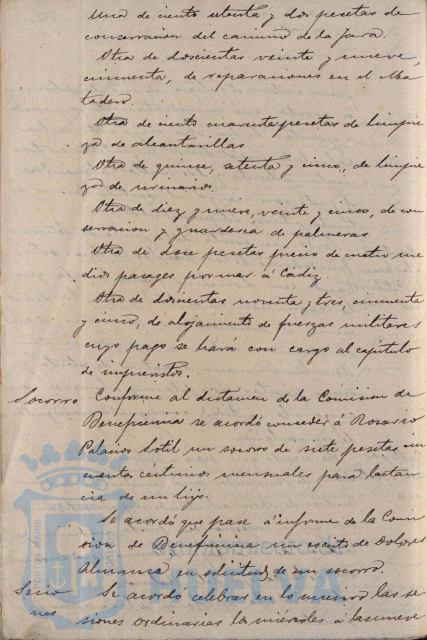 Una de ciento setenta y dos pesetas de
conservacion del camino de la Jara.
Otra de doscientas veinte y nueve,
cincuenta, de reparaciones en el Ma
tadero.
Otra de ciento cuarenta pesetas de limpie
za de alcantarillas
Otra de quince, setenta y cinco, de limpie
za de urinarios.
Otra de diez y nueve, veinte y cinco, de con
servacion y guarderia de palmeras.
Otra de doce pesetas precio de cuatro me
dios pasages por mar á Cádiz.
Otra de doscientas noventa y tres, cincuenta
y cinco, de alojamiento de fuerzas militares
cuyo pago se hará con cargo al capítulo
de imprevistos.
Socorro Conforme al dictamen de la Comision de
Beneficencia se acordó conceder á Rosario
Sotil un socorro de siete pesetas cin
cuenta céntimos mensuales para lactan
cia de un hijo.
Se acordó que pase á informe de la Comi
sion de Beneficencia un escrito de Dolores
Almanza en solicitud de un socorro.
Sesio Se acordó celebrar en lo sucesivo las se
nes siones ordinarias los miércoles á las nueve
HUELVA